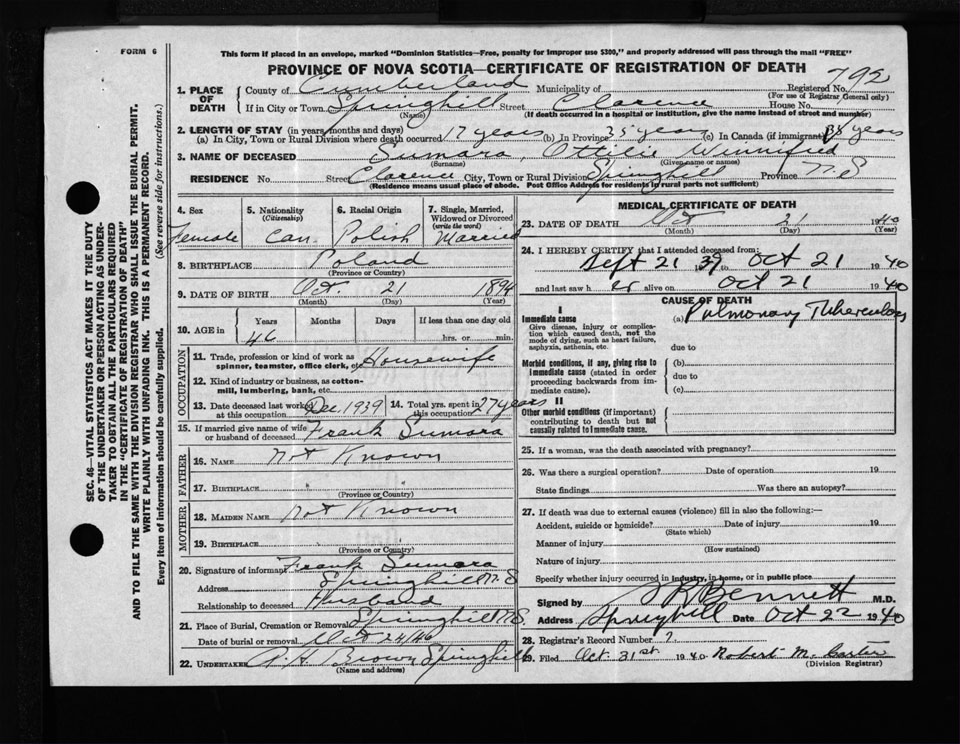 FORM 6
This form if placed in an envelope, marked "Dominion Statistics—Free, penalty for improper use $300," and properly addressed will pass through the mail "FREE"
PROVINCE OF NOVA SCOTIA—CERTIFICATE OF REGISTRATION OF DEATH
1. PLACE OF DEATH County of Cumberland Municipality of Registered No. 792
(For use of Registrar General only)
If in City or Town Springhill Street Clarence House No.
(Name) (If death occurred in a hospital or institution, give the name instead of street and number)
2. LENGTH OF STAY (in years, months and days)
(a) In City, Town or Rural Division where death occurred 17 years (b) In Province 35 years (c) In Canada (if immigrant) 35 years
3. NAME OF DECEASED Sumara, Ottilie Winnifred
(Surname) (Given name or names)
RESIDENCE No. Street Clarence City, Town or Rural Division Springhill Province N.S
(Residence means usual place of abode. Post Office Address for residents in rural parts not sufficient)
4. Sex Female
5. Nationality (Citizenship) Can
6. Racial Origin Polish
7. Single, Married, Widowed or Divorced (write the word) Married
8. BIRTHPLACE Poland
(Province or Country)
9. DATE OF BIRTH Oct. 21 1894
(Month) (Day) (Year)
10. AGE in Years Months Days If less than one day old
46 hrs. or min.
OCCUPATION
11. Trade, profession or kind of work as spinner, teamster, office clerk, etc. Housewife
12. Kind of industry or business, as cotton-mill, lumbering, bank, etc.
13. Date deceased last worked at this occupation Dec 1939 14. Total yrs. spent in this occupation 27 years
15. If married give name of wife or husband of deceased Frank Sumara
FATHER
16. NAME Not Known
17. BIRTHPLACE
(Province or Country)
MOTHER
18. MAIDEN NAME Not Known
19. BIRTHPLACE
(Province or Country)
20. Signature of informant Frank Sumara
Address Springhill N.S
Relationship to deceased Husband
21. Place of Burial, Cremation or Removal Springhill N.S.
Date of burial or removal Oct 24/40
22. UNDERTAKER A. H. Brown Springhill
(Name and address)
MEDICAL CERTIFICATE OF DEATH
23. DATE OF DEATH Oct 21 1940
(Month) (Day) (Year)
24. I HEREBY CERTIFY that I attended deceased from:
Sept 21 1939 to Oct 21 1940
and last saw her alive on Oct 21 1940
CAUSE OF DEATH
Immediate cause (a) Pulmonary Tuberculosis
Give disease, injury or complication which caused death, not the mode of dying, such as heart failure, asphyxia, asthenia, etc.
due to
Morbid conditions, if any, giving rise to immediate cause (stated in order proceeding backwards from immediate cause).
(b)
due to
(c)
II
Other morbid conditions (if important) contributing to death but not causally related to immediate cause.
25. If a woman, was the death associated with pregnancy?
26. Was there a surgical operation? Date of operation 19
State findings Was there an autopsy?
27. If death was due to external causes (violence) fill in also the following:—
Accident, suicide or homicide? Date of injury 19
(State which)
Manner of injury
(How sustained)
Nature of injury
Specify whether injury occurred in industry, in home, or in public place
Signed by Bennett M.D.
Address Springhill Date Oct 22 1940
28. Registrar's Record Number
29. Filed Oct. 31st 1940 Robert M. Carter
(Division Registrar)
SEC. 46—VITAL STATISTICS ACT MAKES IT THE DUTY
OF THE UNDERTAKER OR PERSON ACTING AS UNDERTAKER TO OBTAIN ALL THE PARTICULARS REQUIRED
IN THE "CERTIFICATE OF REGISTRATION OF DEATH"
AND TO FILE THE SAME WITH THE DIVISION REGISTRAR WHO SHALL ISSUE THE BURIAL PERMIT.
WRITE PLAINLY WITH UNFADING INK. THIS IS A PERMANENT RECORD.
Every item of information should be carefully supplied. (See reverse side for instructions.)